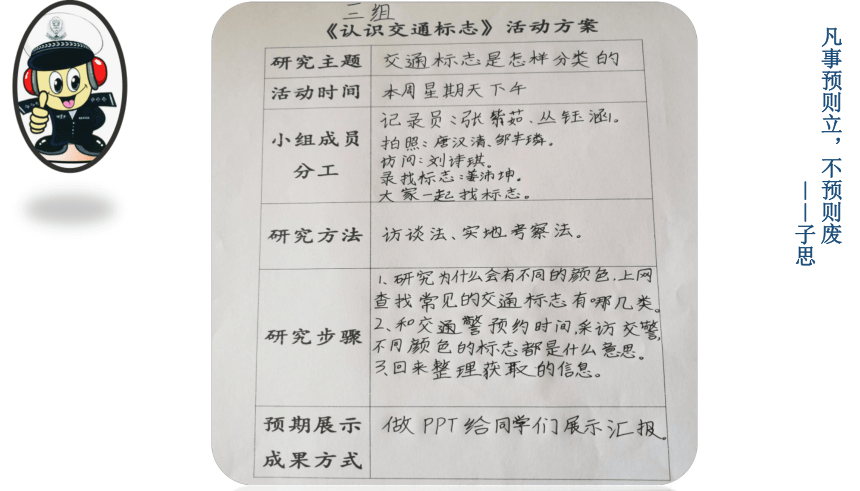 三组
《认识交通标志》活动方案
研究主题
交通标志是怎样分类的
活动时间
本周星期天下午
小组成员
分工
记录员:张紫茹、丛钰涵。
拍照:唐汉清、邹芈璘。
访问:刘诗琪。
录找标志:姜沛坤。
大家一起找标志。
研究方法
访谈法、实地考察法。
研究步骤
1、研究为什么会有不同的颜色,上网
查找常见的交通标志有哪几类。
2、和交通警预约时间,采访交警,
不同颜色的标志都是什么意思。
3、回来整理获取的信息。
预期展示
成果方式
做PPT给同学们展示汇报。
凡事预则立,不预则废
——子思